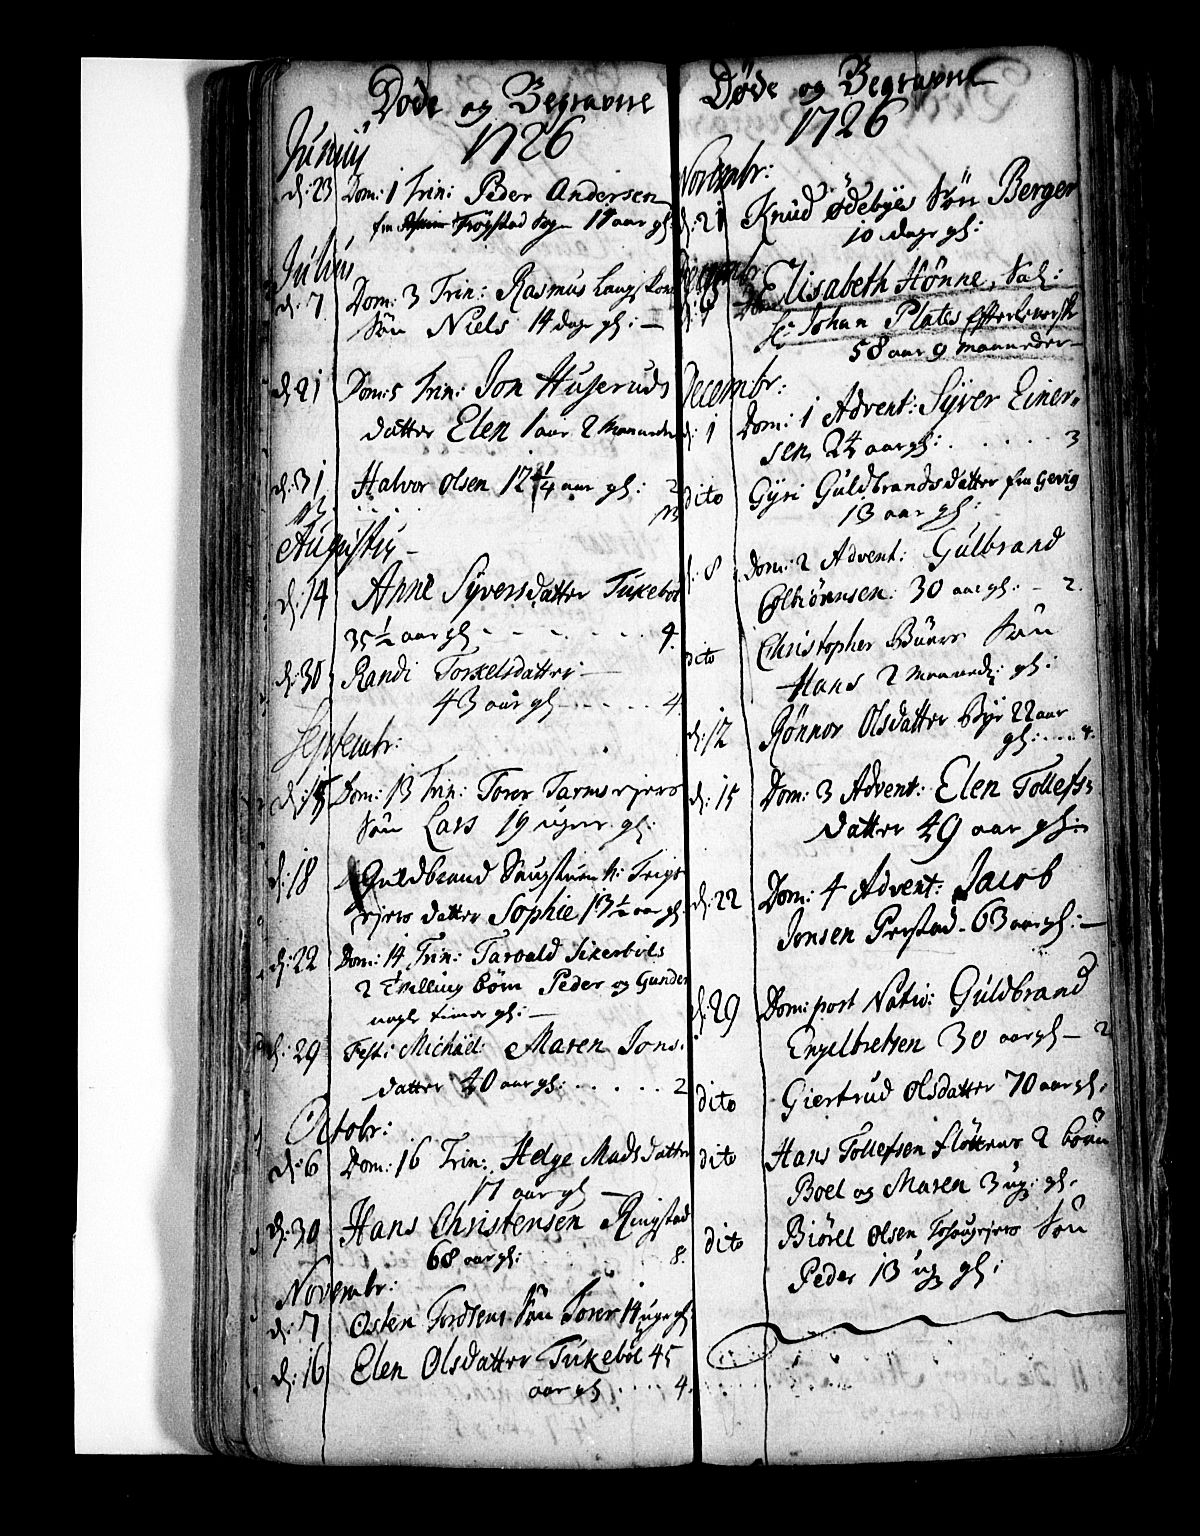 Døde og Begravne
1726
Junij
d: 23 Dom: 1 Trin: Peder Andersen
fra Trögstad Sogn 17 aar gl:
Julius
d: 7 Dom: 3 Trin: Rasmus
Sön Niels 14 dage gl: —
d: 21 Dom: 5 Trin: Jon Huseruds
datter Elen 1 aar 2 Maaneder
d: 31 Halvor Olsen 12 1/4 aar gl: 2
Augustij —
d: 14 Anne Syversdatter Tukebøl
35 1/2 aar gl - - - . . . . . 4.
d: 30 Randi Torkelsdatter —
43 aar gl - . . . . 4.
Septembr:
d: 15 Dom: 13 Trin: Torer
Sön Lars 19 uger gl:
d: 18 Guldbrand
datter Sophie 13 1/2 aar gl:
d: 22 Dom: 14 Trin: Tarvald
2 Tvilling börn Peder og Gunder
nogle timer gl: —
d: 29 Fest: Michäel: Maren Jons-
datter 40 aar gl: . . . . . 2
Octobr:
d: 6 Dom: 16 Trin: Helge Madsdatter
17 aar gl —
d: 30 Hans Christensen Ringstad
68 aar gl: 8.
Novembr:
d: 7 Osten Tordsens Sön Torer 14 uger gl:
d: 16 Elen Olsdatter Tukebøl 45
aar gl . . . . 4.
Døde og Begravne
1726
Novembr:
d: 21 Knud Ødebyes Sön Berger
10 dage gl:
Elisabeth Hönne, Sal:
Hr: Johan Plates Efterleverske
58 aar 9 maaneder —
Decembr:
d: 1 Dom: 1 Advent: Syver Einer-
sen 24 aar gl: . . . . . . 3
dito Gyri Guldbrandsdatter fra Gevig
13 aar gl:
d: 8 Dom: 2 Advent: Gulbrand
Colbiörnsen 30 aar gl: — 2.
dito Christopher Sön
Hans 2 Maaned: gl:
d: 12 Rønnor Olsdatter Bye 22 aar
gl: . . . 4.
d: 15 Dom: 3 Advent: Elen Tollefs-
datter 49 aar gl:
d: 22 Dom: 4 Advent: Jacob
Jonsen Perstad - 63 aar gl: —
d: 29 Dom: post Nativ: Guldbrand
Engelbretsen 30 aar gl — 2
dito Giertrud Olsdatter 70 aar gl:
dito Hans Tollefsen 2 börn
Boel og Maren 3 ug: gl:
dito Biörel Olsen Sön
Peder 13 ug gl: